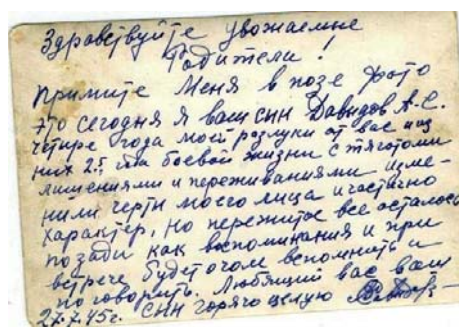 Здравствуйте уважаемые
Родители!
Примите меня в позе фото
это сегодня я ваш сын Давидов А.С.
четыре года моей разлуки от вас из
них 2.5 боевой жизни с тяготами
лишениями и переживаниями изме-
нили черты моего лица и частично
характер, но пережитое все осталось
позади как воспоминания и при
встрече будет о чем вспомнить и
поговорить. Любящий вас ваш
27.7.45г. сын горячо целую